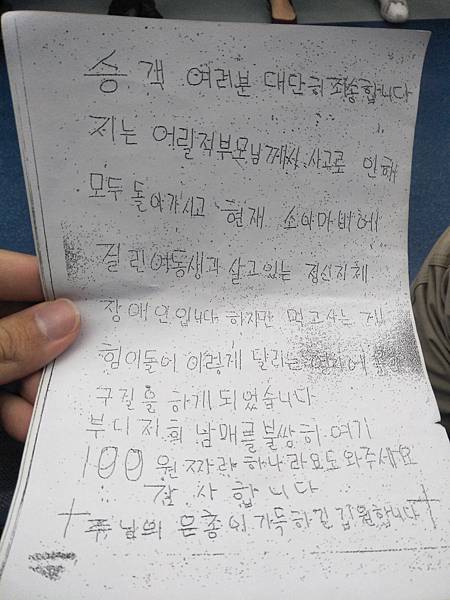 승객 여러분 대단히 죄송합니다
저는 어릴적부모님께서 사고로 인해
모두 돌아가시고 현재 소아마비에
걸린여동생과 살고있는 정신지체
장애인입니다 하지만 먹고사는 게
힘이들어 이렇게 달리는 열차에 올라
구걸을 하게 되었습니다
부디 저희 남매를불쌍히 여겨
100원짜리 하나라도도와주세요
감사합니다
주님의 은총이가득하길 기원합니다